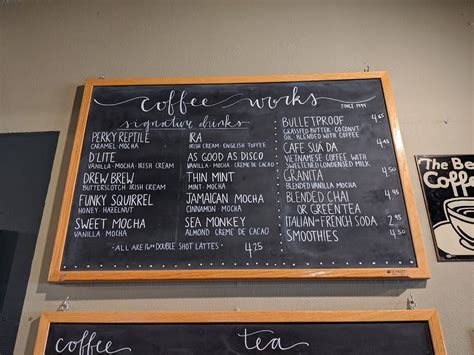 coffee works
SINCE 1999
signature drinks
PERKY REPTILE
CARAMEL MOCHA
D'LITE
VANILLA · MOCHA · IRISH CREAM
DREW BREW
BUTTERSCOTCH IRISH CREAM
FUNKY SQUIRREL
HONEY HAZELNUT
SWEET MOCHA
VANILLA · MOCHA
IRA
IRISH CREAM · ENGLISH TOFFEE
AS GOOD AS DISCO
VANILLA · MOCHA · CREME DE CACAO
THIN MINT
MINT · MOCHA
JAMAICAN MOCHA
CINNAMON · MOCHA
SEA MONKEY
ALMOND CREME DE CACAO
- ALL ARE 16oz DOUBLE SHOT LAYTES - 4.25
BULLETPROOF 4.65
GRASSFED BUTTER · COCONUT
OIL BLENDED WITH COFFEE
CAFE SUA DA 4.45
VIETNAMESE COFFEE WITH
SWEETENED CONDENSED MILK
GRANITA 4.50
BLENDED VANILLA MOCHA
BLENDED CHAI
OR GREEN TEA 4.50
ITALIAN OR FRENCH SODA 2.95
SMOOTHIES 4.50
The Be
Coff
coffee
tea